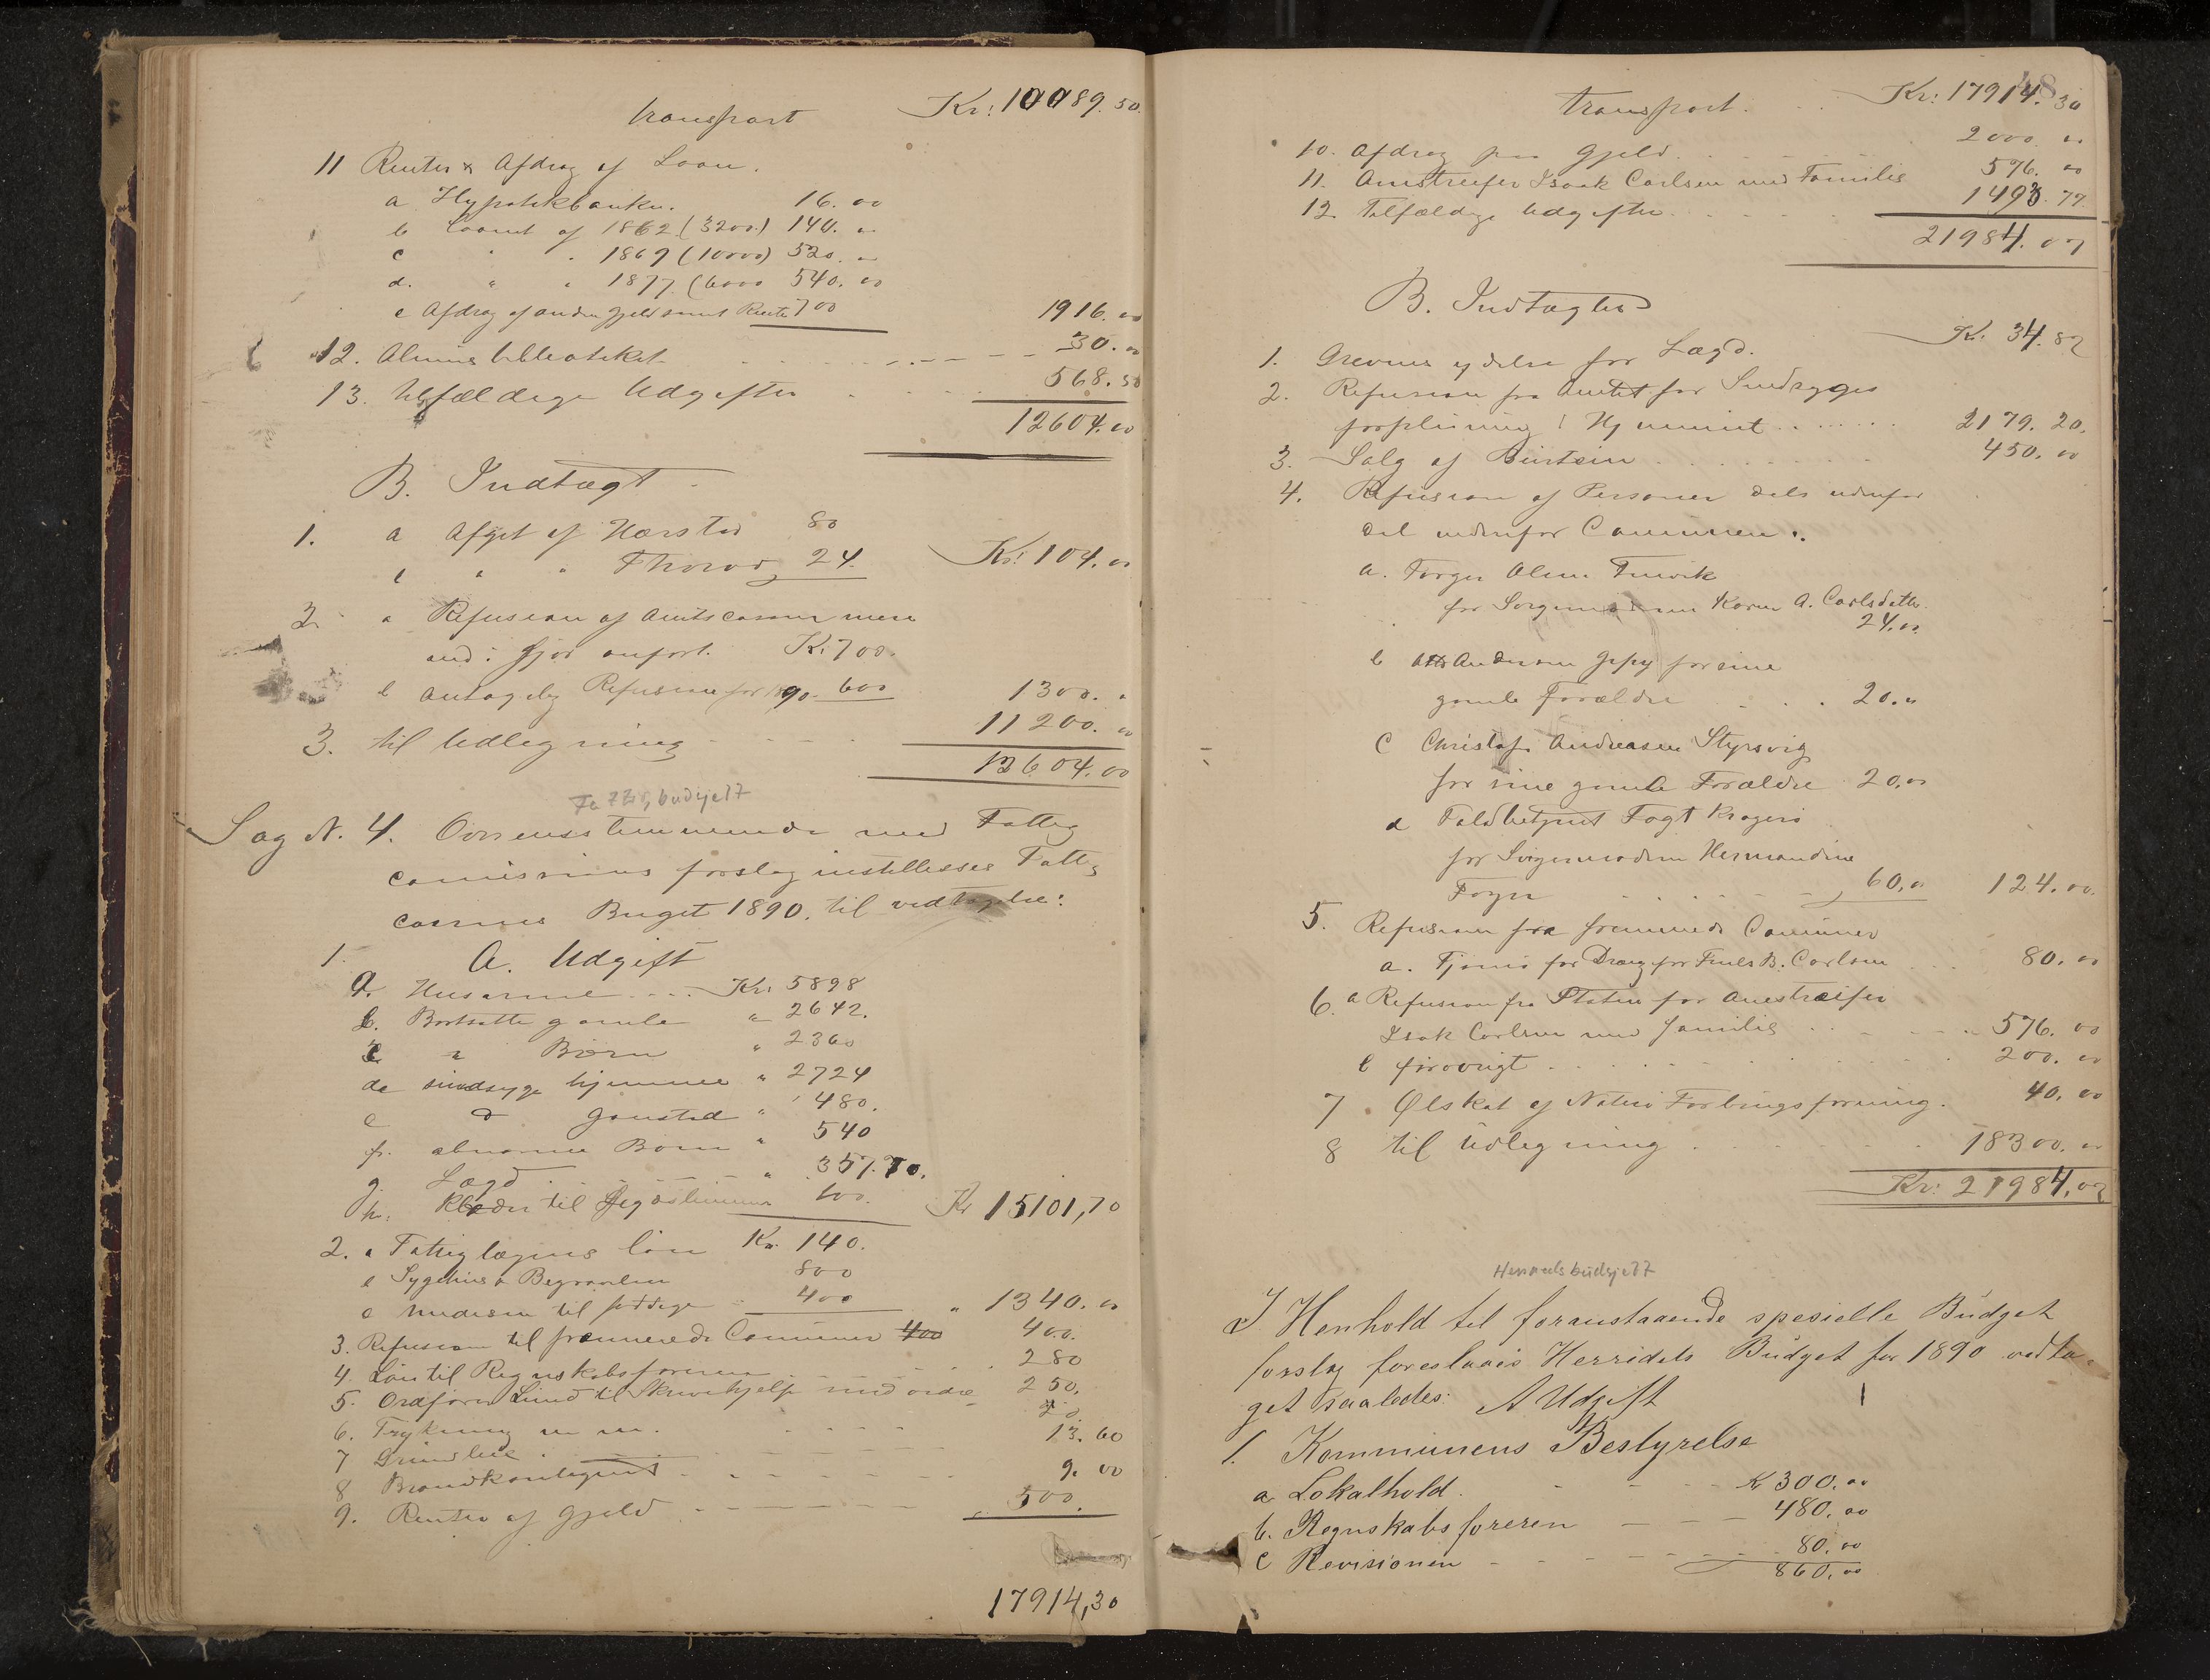 transport Kr: 10089.50
11 Renter & Afdrag af Laan.
a Hypotekbanken. 16.00
b Laanet af 1862 (3200) 140. "
c " " 1869 (10000) 520. "
d. " " 1877 (6000 540.00
e Afdrag af anden Gjeld samt Renter 700 1916.00
12. Almuebibliotheket 30.00
13. tilfældige Udgifter 568.50
12604.00
B. Indtægt
1. a Afgit af Hærstad 80
b " " 24. Kr: 104.00
2. a Refusion af Amtscassen mere
end i fjor anført. Kr 700.
b antagelig Refusion for 1890. 600 1300. "
3. til Udlegning 11200.00
12604.00
budsjett
Sag N. 4. Overensstemmende med Fattig
comissionens forslag instillesses Fattig
cassens Buget 1890. til vedtagelse:
1. A. Udgift
a. Husarme Kr: 5898
b. Bortsatte gamle " 2642.
c " Børn " 2360
d sindsyge hjemme " 2724
e d Gaustad " 480.
f. abnorme Børn " 540
g. Lægd " 357.70.
h. Klæder til 100. Kr 15101,70
2. a Fattiglægens løn Kr. 140.
b Sygehus & Begravelser 800
c Medisin til fattige 400 " 1340.00
3. Refusion til fremmede Communer 400 400.
4. Løn til Regnskabsføreren 280
5. Ordfører Lund til Skrivehjelp med videre 250.
6. Trykning m m. 20
7 Grundleie 13.60
8 Brandkontingent 9.00
9. Renter af Gjeld 500.
17914,30
48
transport. Kr: 17914.30
10. Afdrag paa Gjeld 2000.00
11. Omstreifer Isaak Carlsen med Familie 576.00
12. Tilfældige Udgifter 1493.77
21984.07
B. Indtægter
1. Grevens ydelse for Lægd. Kr. 34.87
2. Refusion fra Amtet for Sindsyges
forpleining i Hjemmet 2179.20.
3. Salg af 450.00
4. Refusion af Personer dels udenfor
del indenfor Communen:
a. Torger Olsen
for Karen A. Carlsdatter
24.00
b Andersen for sine
gamle Forældre 20. "
c Christofer Andreasen Styrsvig
for sine gamle Forældre 20.00
d Toldbetjent Fogt Kragerø
for Hermandine
60.00 124.00
5. Refusion fra fremmede Communer
a. Tjømø for B. Carlsen 80.00
6. a Refusion fra Staten for Omstreifer
Isak Carlsen med familie 576.00
b forøvrigt 200.00
7 Ølskat af 40.00
8 til Udlegning 18300.00
Kr: 21984.07
Herredsbudsjett
I Henhold til foranstaaende spesielle Budget
forslag foreslaaes Herredets Budget for 1890 vedta-
get saaledes: A Udgift
1. Kommunens Bestyrelse
a Lokalhold. Kr 300.00
b. Regnskabsføreren 480.00
c Revisionen 80.00
860.00